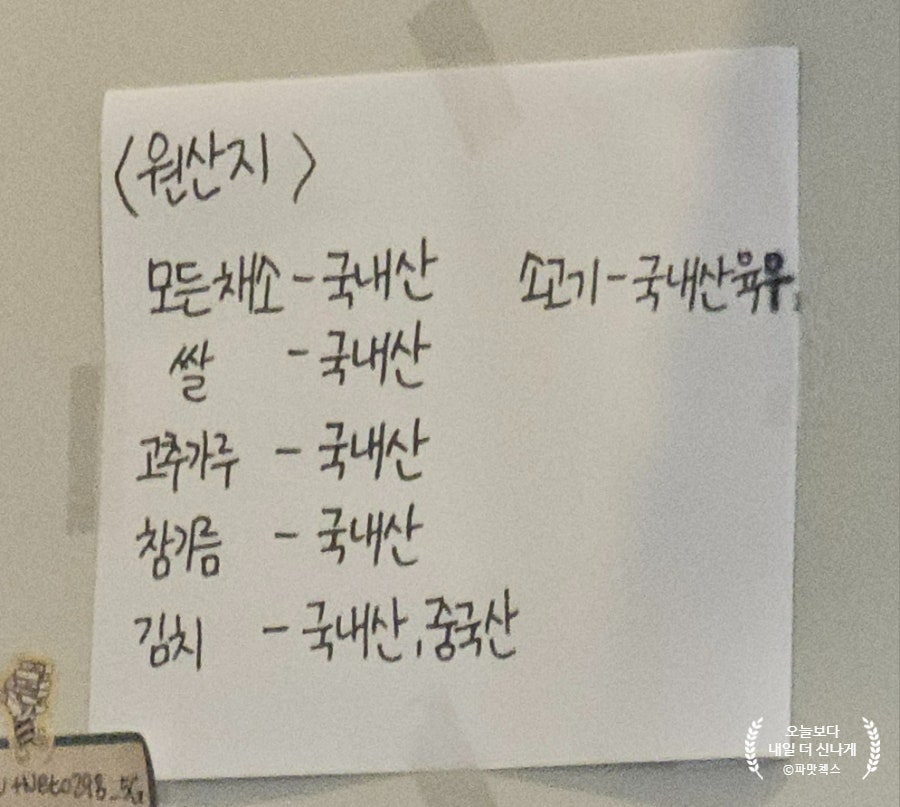 〈원산지〉
모든채소 - 국내산 소고기 - 국내산육우
쌀 - 국내산
고추가루 - 국내산
참기름 - 국내산
김치 - 국내산, 중국산
오늘보다
내일 더 신나게
©파맛첵스